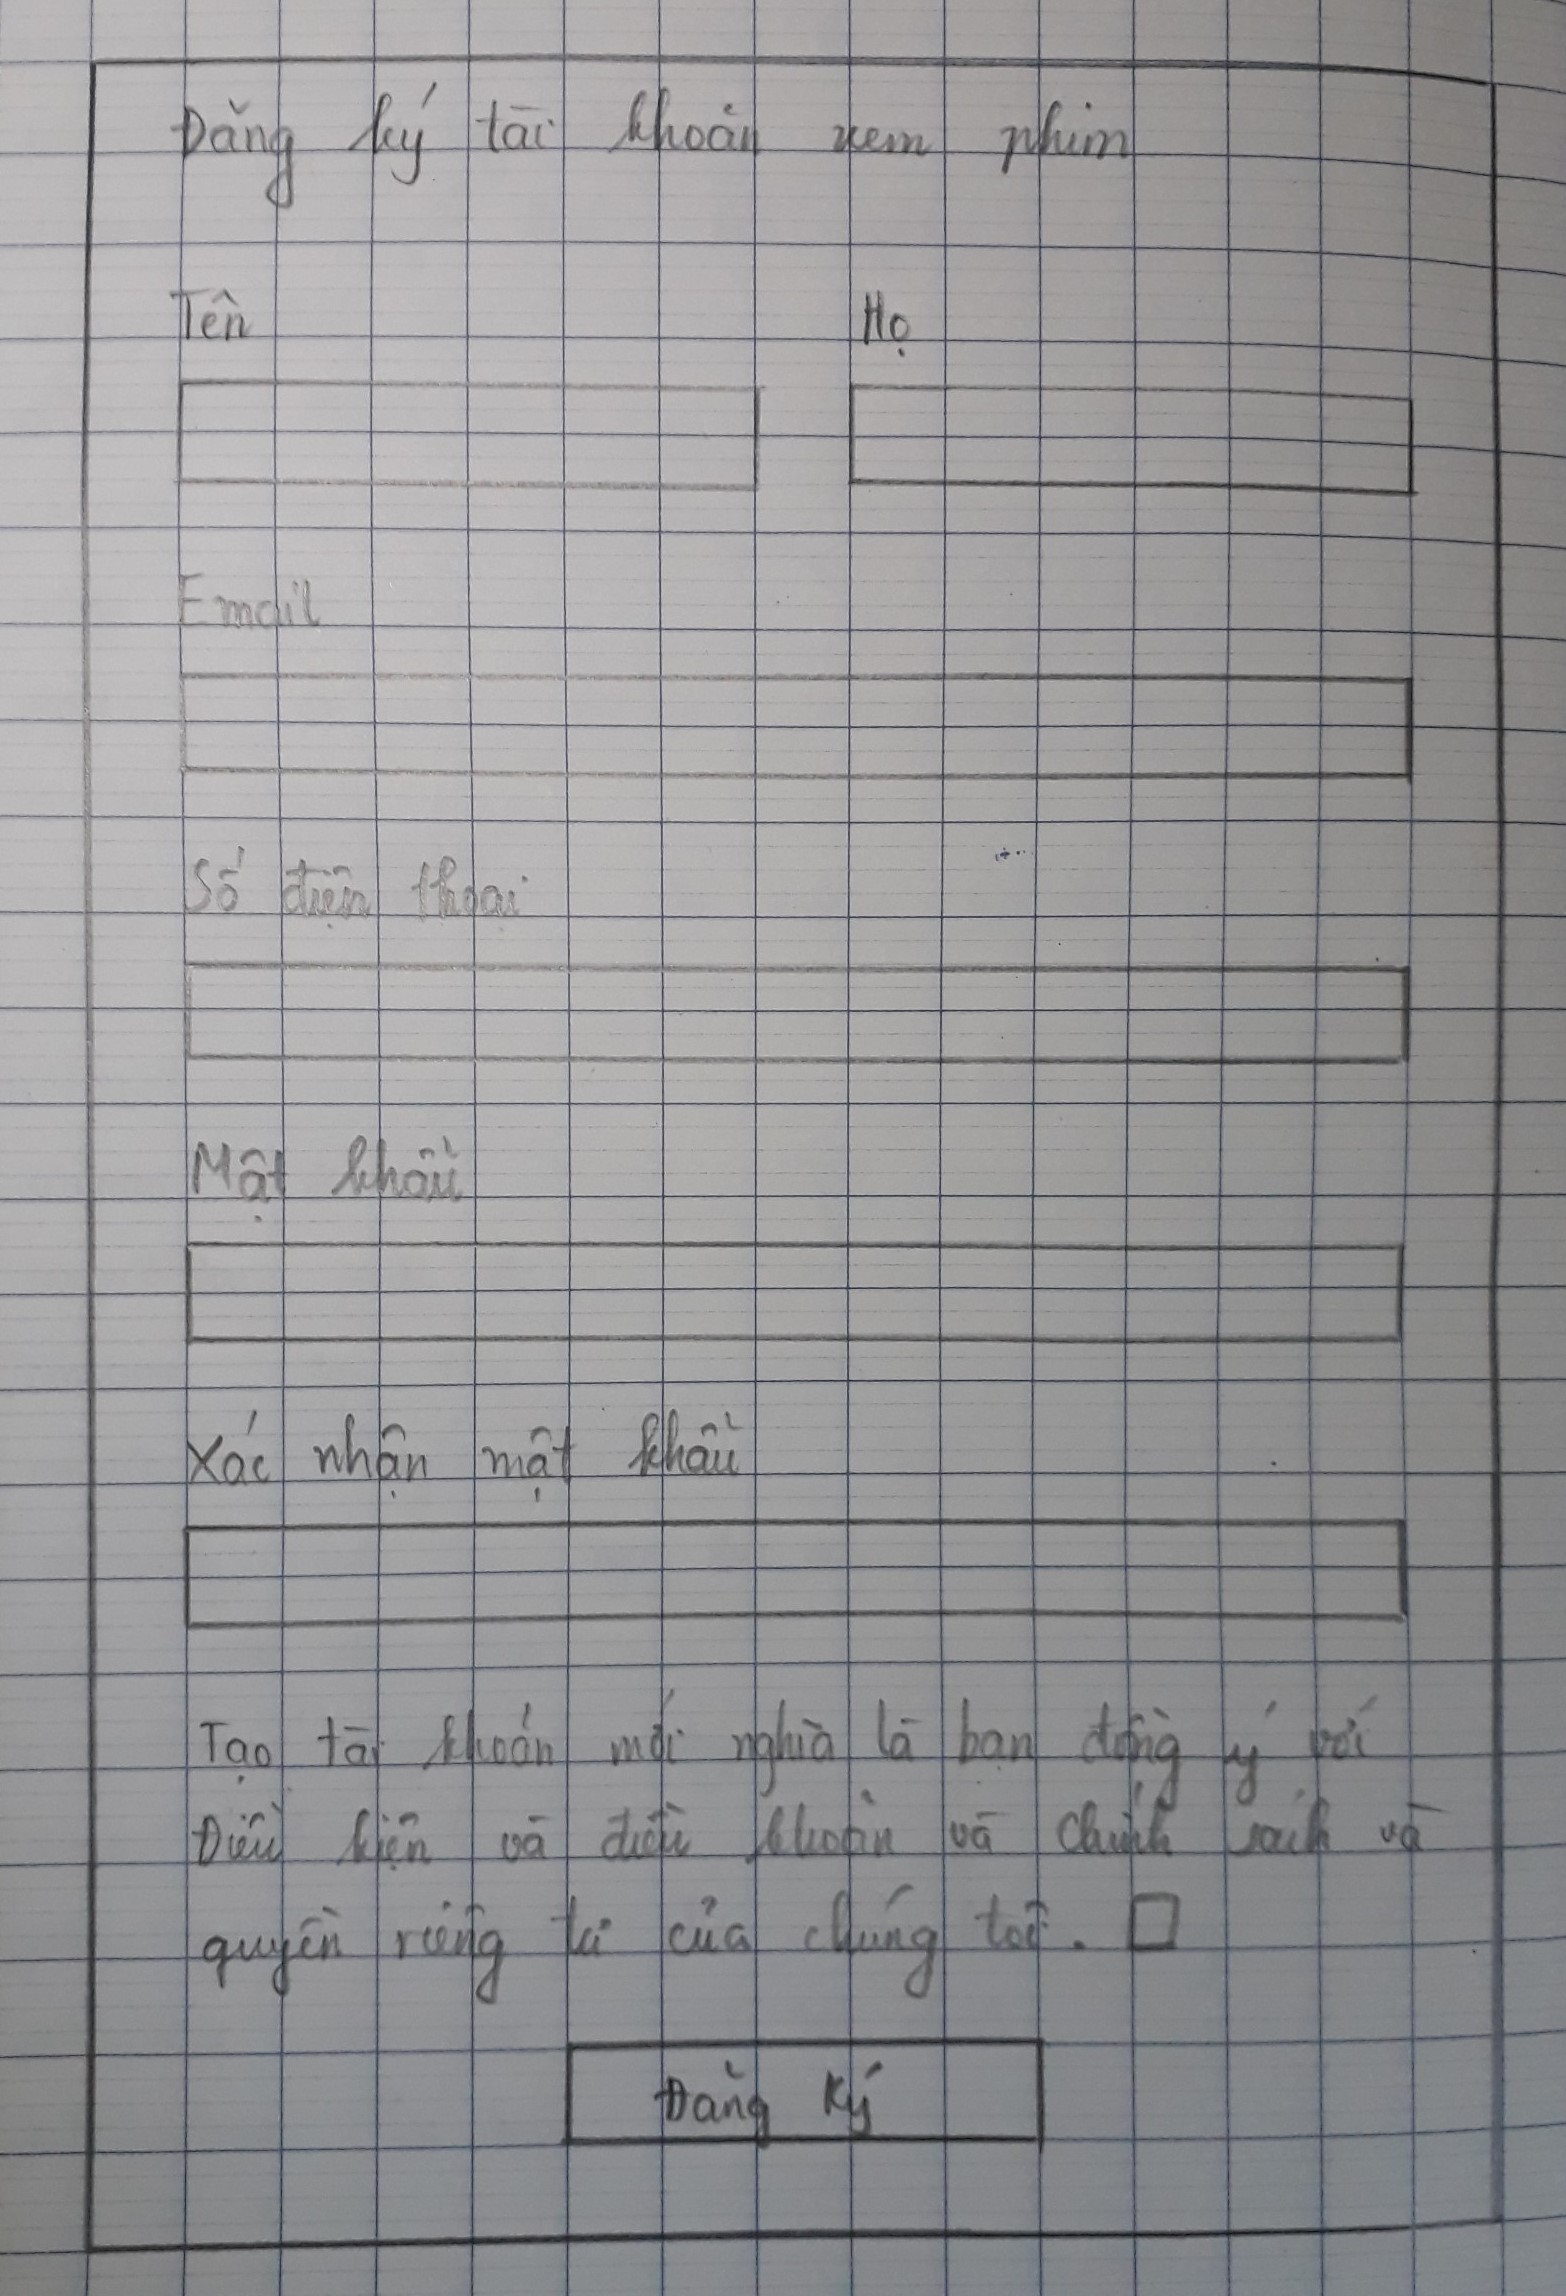 Đăng ký tài khoản xem phim
Tên Họ
Email
Số điện thoại
Mật khẩu
Xác nhận mật khẩu
Tạo tài khoản mới nghĩa là bạn đồng ý với
Điều kiện và điều khoản và Chính sách và
quyền riêng tư của chúng tôi.
Đăng Ký